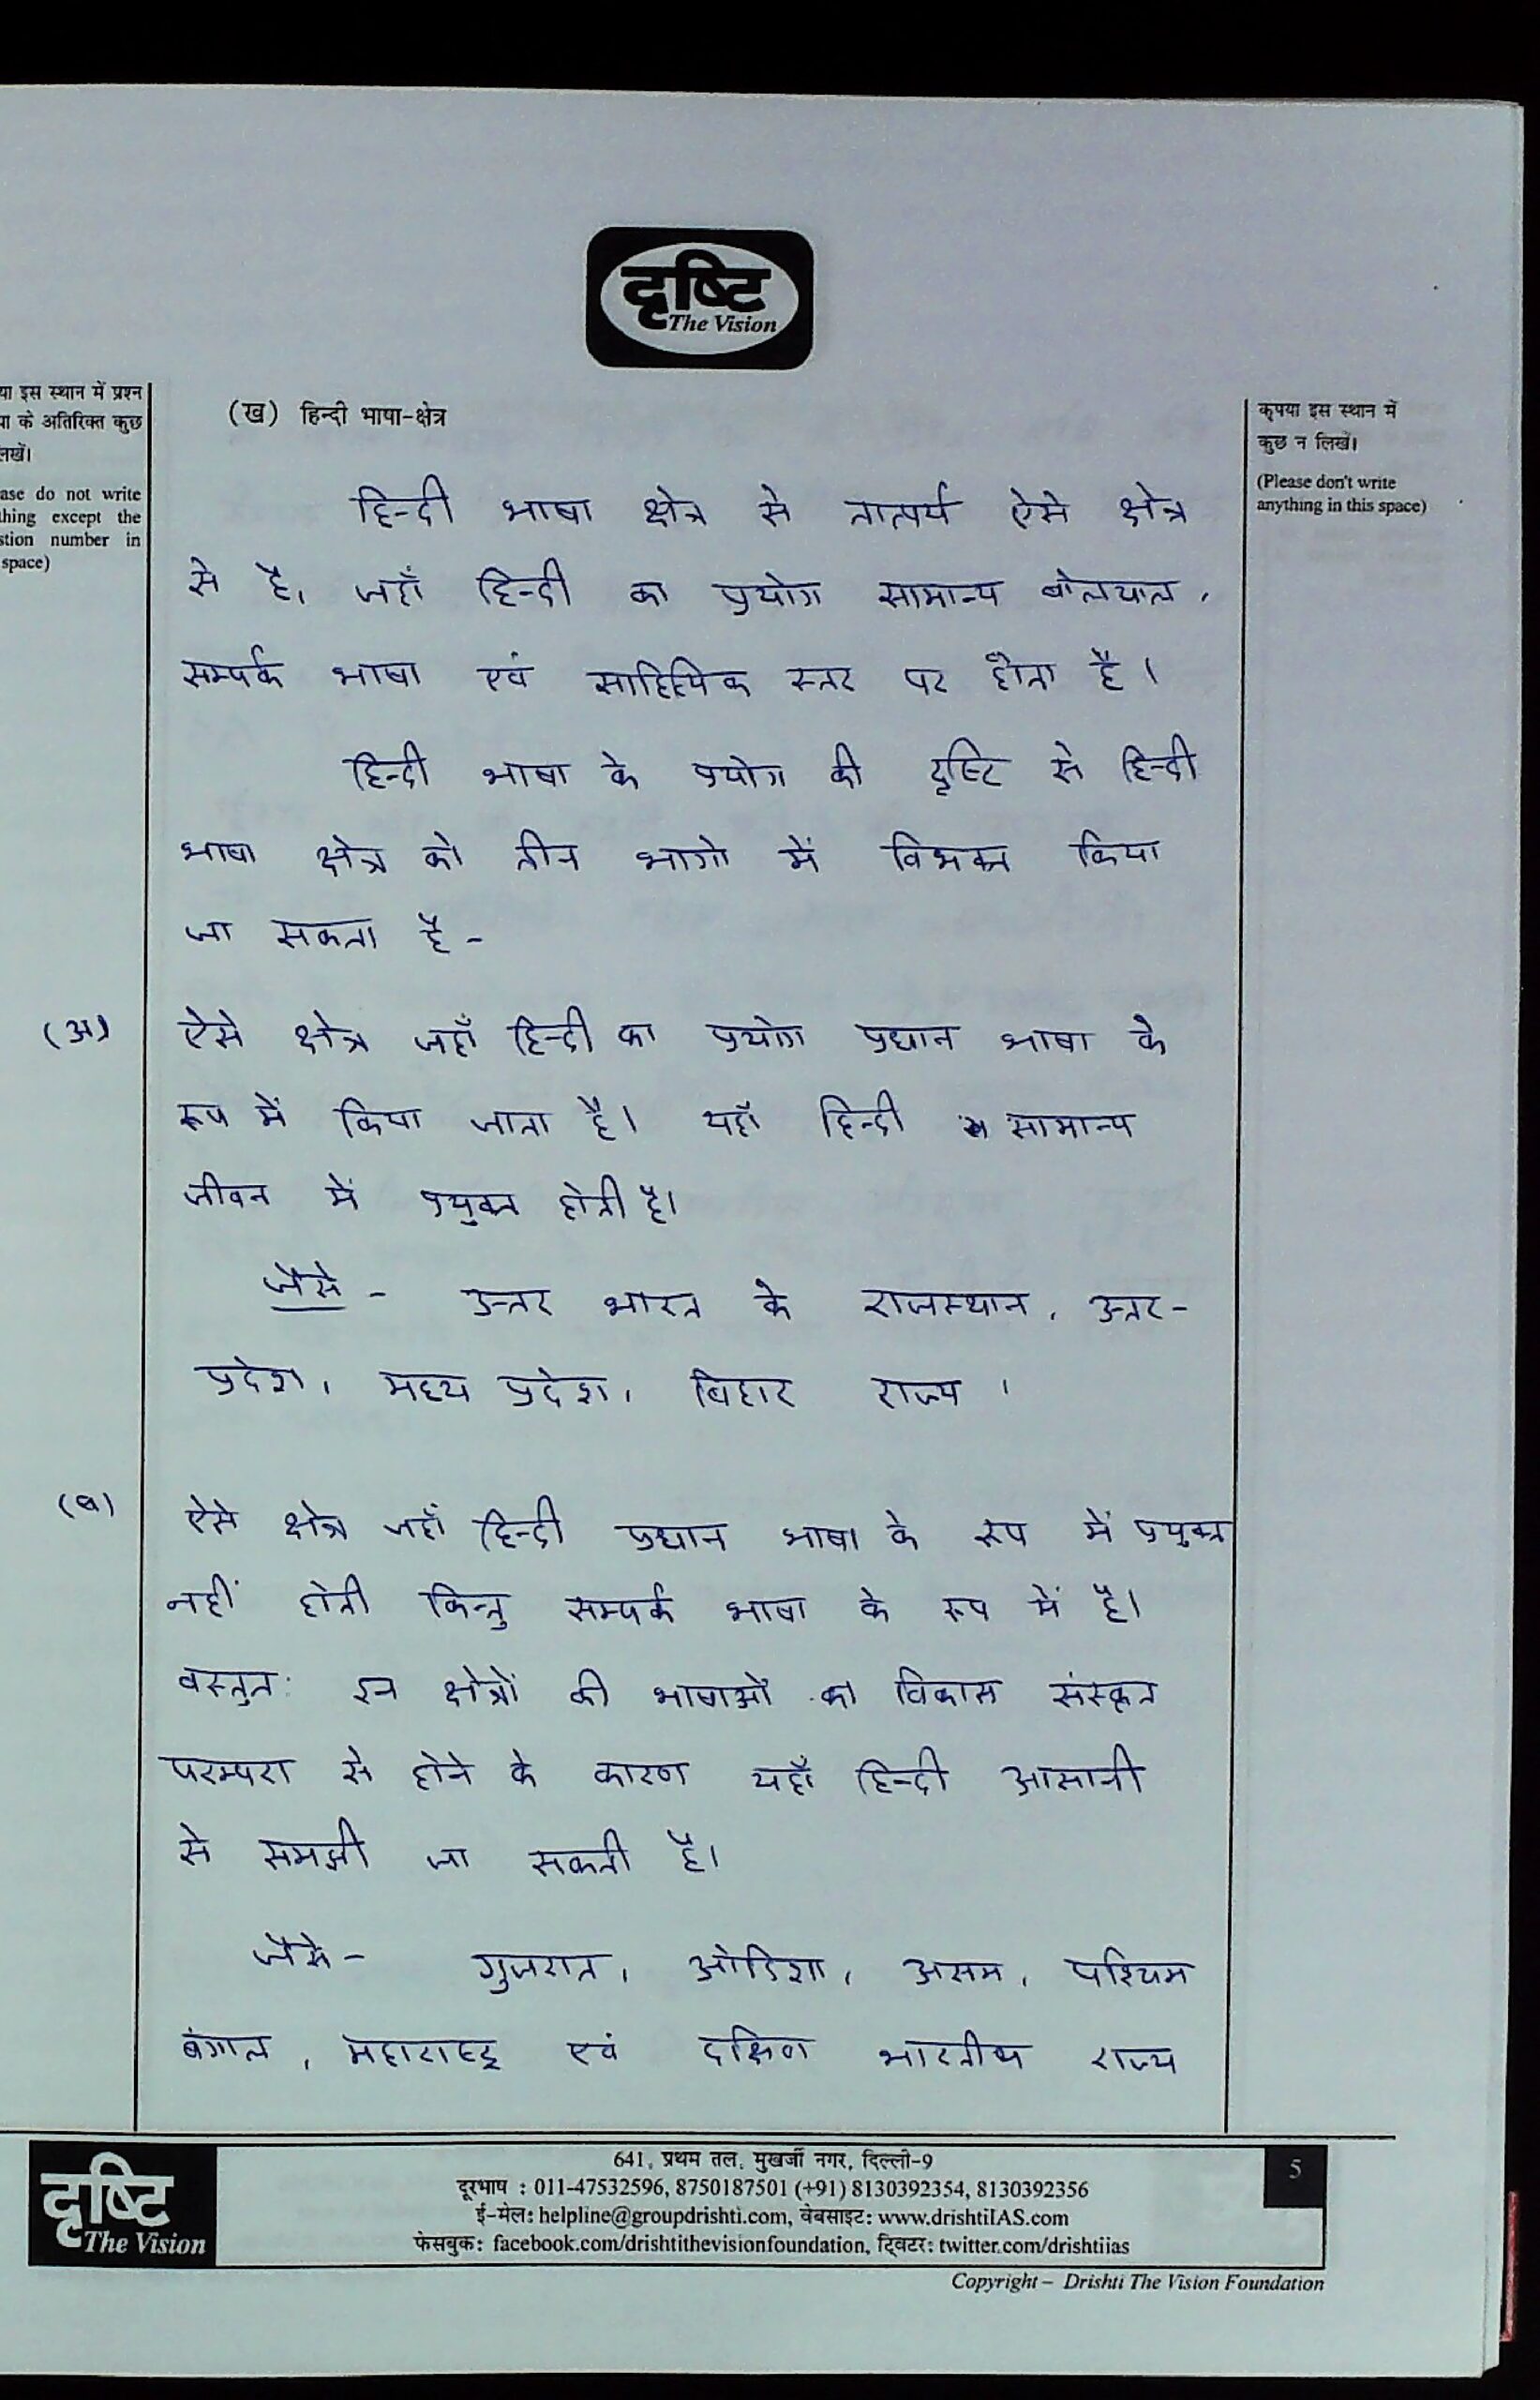 दृष्टि
The Vision
या इस स्थान में प्रश्न
या के अतिरिक्त कुछ
लिखें।
ase do not write
thing except the
stion number in
space)
(ख) हिन्दी भाषा-क्षेत्र
कृपया इस स्थान में
कुछ न लिखें।
(Please don't write
anything in this space)
हिन्दी भाषा क्षेत्र से तात्पर्य ऐसे क्षेत्र
से है, जहाँ हिन्दी का प्रयोग सामान्य बोलचाल,
सम्पर्क भाषा एवं साहित्यिक स्तर पर होता है।
हिन्दी भाषा के प्रयोग की दृष्टि से हिन्दी
भाषा क्षेत्र को तीन भागो में विभक्त किया
जा सकता है-
(अ) ऐसे क्षेत्र जहाँ हिन्दी का प्रयोग प्रधान भाषा के
रूप में किया जाता है। यहाँ हिन्दी सामान्य
जीवन में प्रयुक्त होती है।
जैसे - उत्तर भारत के राजस्थान, उत्तर-
प्रदेश, मध्य प्रदेश, बिहार राज्य।
(ब) ऐसे क्षेत्र जहाँ हिन्दी प्रधान भाषा के रूप में प्रयुक्त
नहीं होती किन्तु सम्पर्क भाषा के रूप में है।
वस्तुतः इन क्षेत्रों की भाषाओं का विकास संस्कृत
परम्परा से होने के कारण यहाँ हिन्दी आसानी
से समझी जा सकती है।
जैसे - गुजरात, ओडिशा, असम, पश्चिम
बंगाल, महाराष्ट्र एवं दक्षिण भारतीय राज्य
दृष्टि
The Vision
641, प्रथम तल, मुखर्जी नगर, दिल्ली-9
दूरभाष : 011-47532596, 8750187501 (+91) 8130392354, 8130392356
ई-मेल: helpline@groupdrishti.com, वेबसाइट: www.drishtiIAS.com
फेसबुक: facebook.com/drishtithevisionfoundation, ट्विटर: twitter.com/drishtiias
5
Copyright – Drishti The Vision Foundation